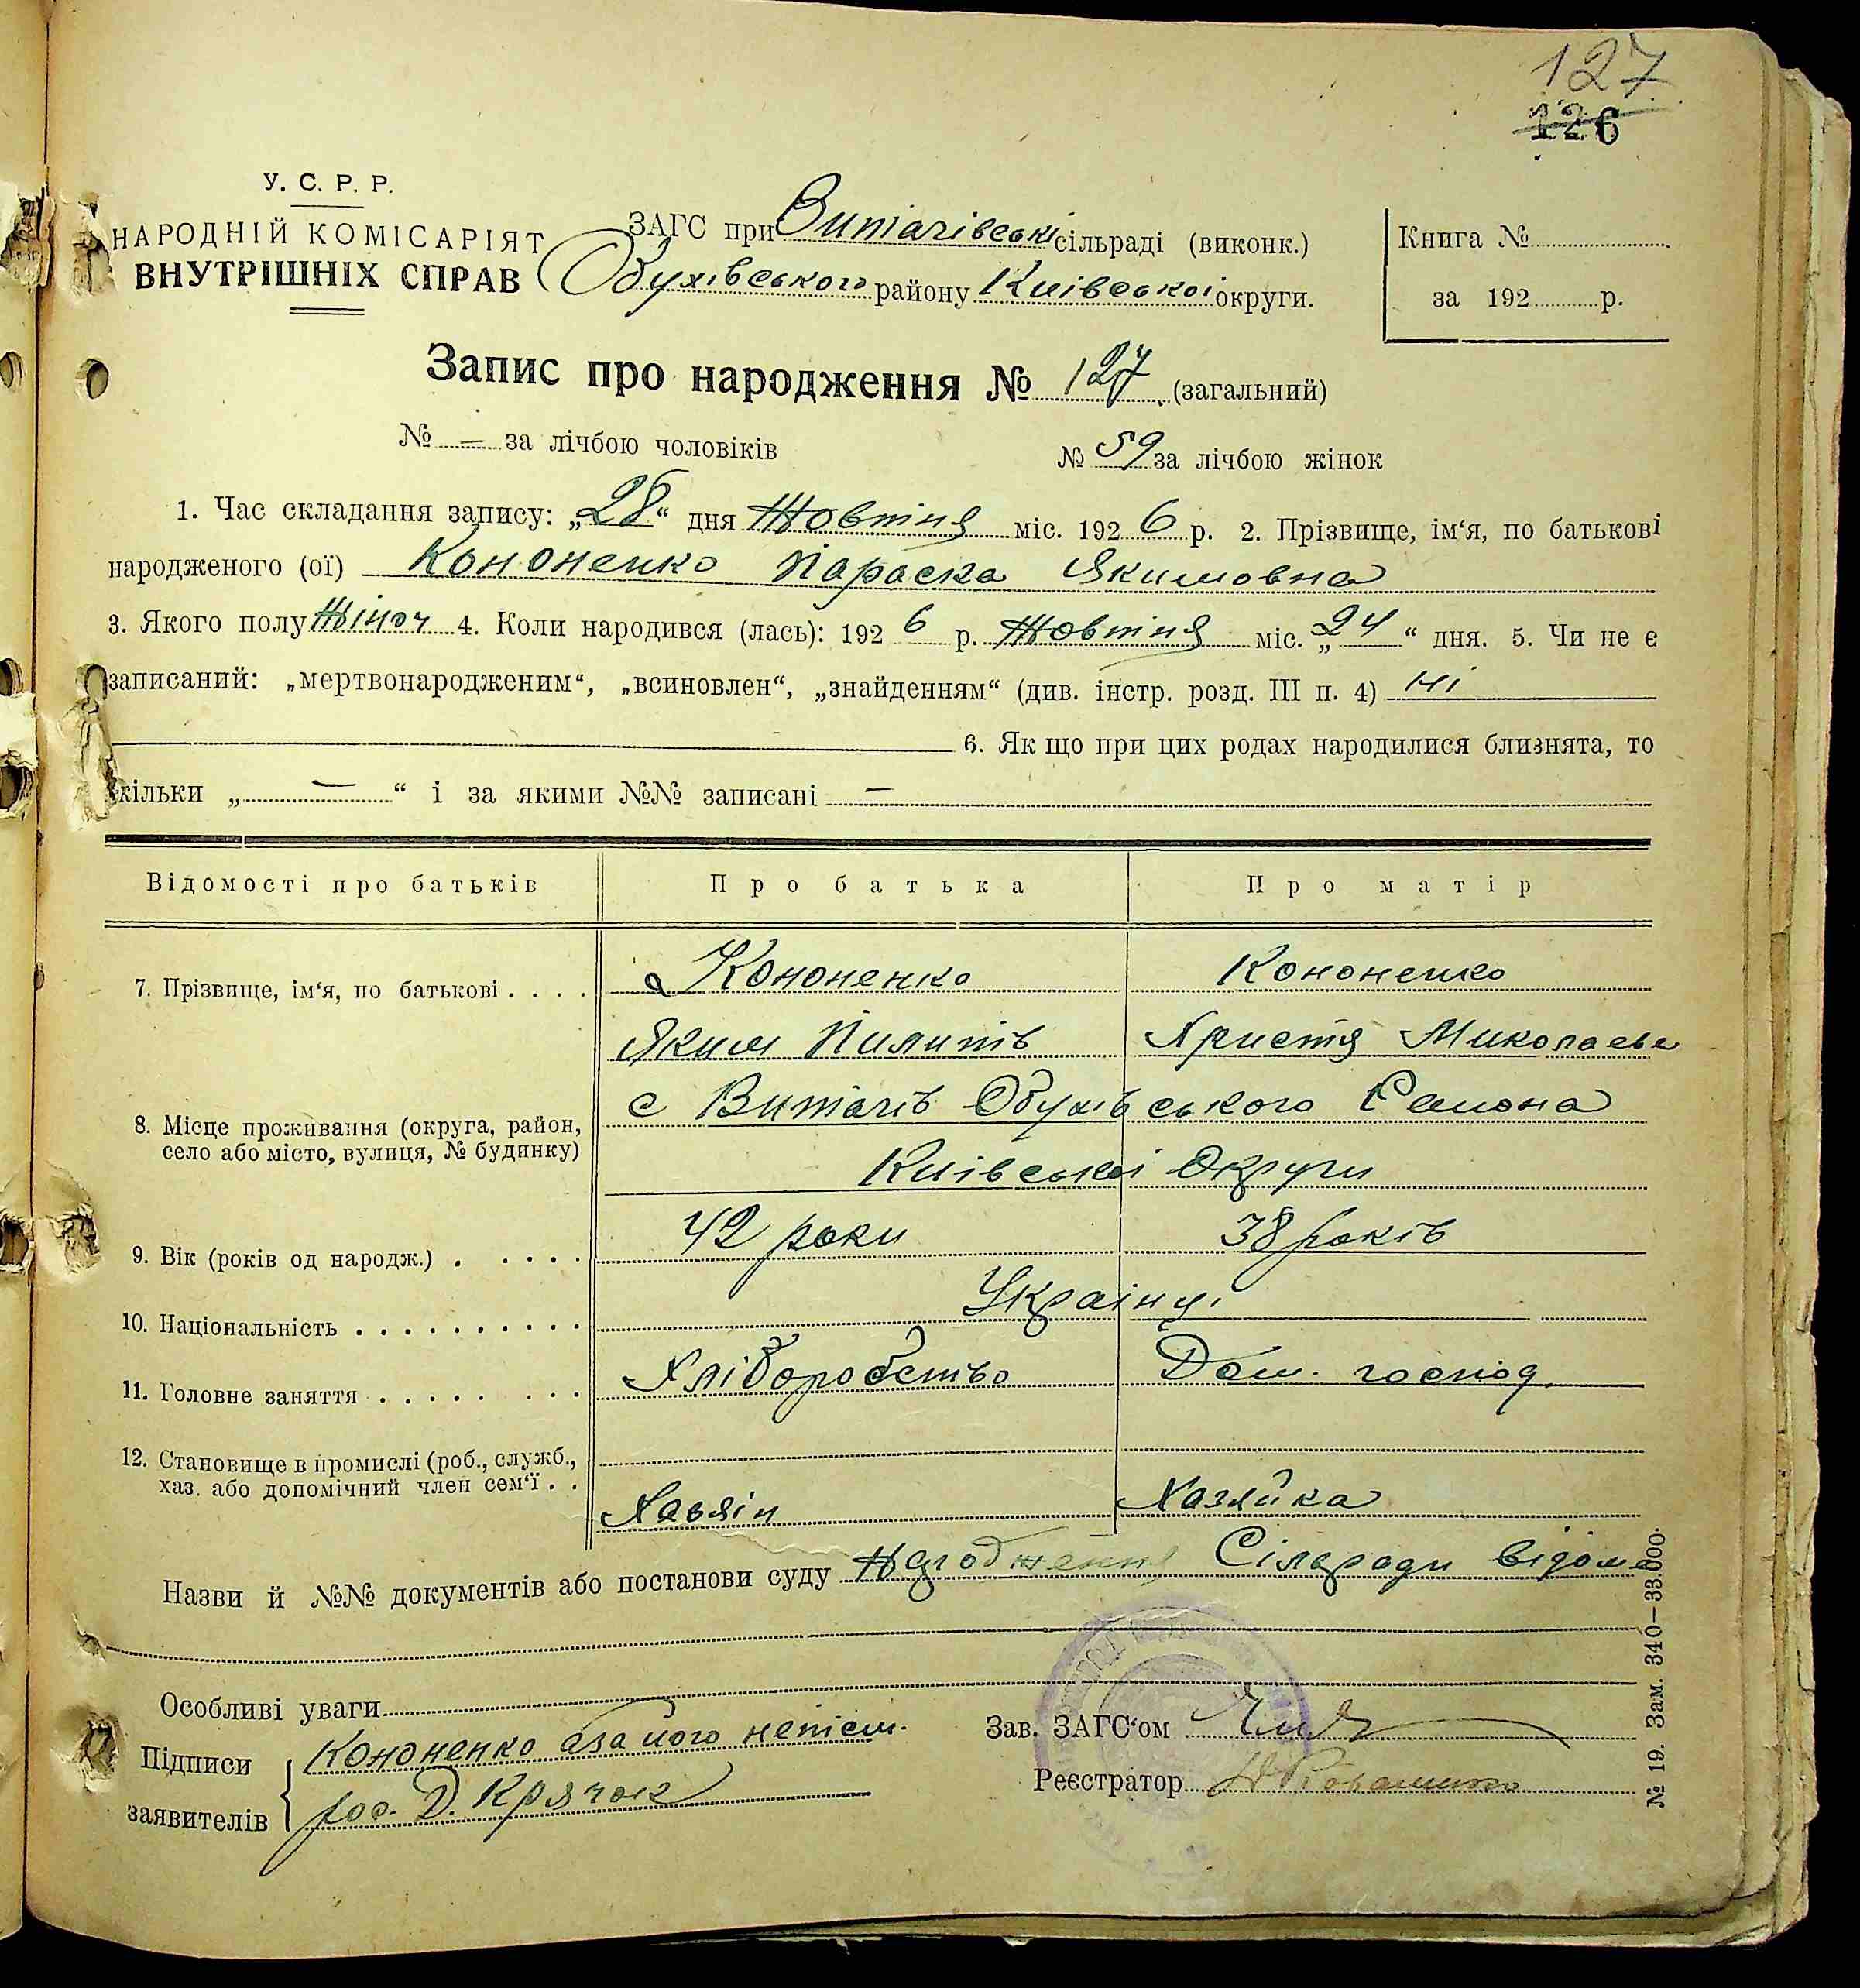 127
126
У. С. Р. Р.
НАРОДНІЙ КОМІСАРІЯТ
ВНУТРІШНІХ СПРАВ
ЗАГС при Витачівські сільраді (виконк.)
Обухівського району Київськоі округи.
Книга №
за 192 р.
Запис про народження № 127 (загальний)
№ – за лічбою чоловіків № 59 за лічбою жінок
1. Час складання запису: „28“ дня Жовтня міс. 1926 р. 2. Прізвище, ім‘я, по батькові
народженого (ої) Кононенко Параска Якимовна
3. Якого полу Жіноч 4. Коли народився (лась): 1926 р. Жовтня міс. „24“ дня. 5. Чи не є
записаний: „мертвонародженим“, „всиновлен“, „знайденням“ (див. інстр. розд. III п. 4) Ні
6. Як що при цих родах народилися близнята, то
кільки „ — “ і за якими №№ записані —
Відомості про батьків Про батька Про матір
7. Прізвище, ім‘я, по батькові . . . . Кононенко Кононенко
Яким Пилипів Христя Миколаєва
8. Місце проживання (округа, район,
село або місто, вулиця, № будинку)
с Витачів Обухівського Района
Київськоі Округи
9. Вік (років од народж.) . . . . . 42 роки 38 років
10. Національність . . . . . . . . . . Украінці
11. Головне заняття . . . . . . . . Хліборобство Дом. господ.
12. Становище в промислі (роб., служб.,
хаз. або допомічний член сем‘ї . .
Хазяін Хазяйка
Назви й №№ документів або постанови суду Народження Сільради відоме
Особливі уваги
Підписи
заявителів
Кононенко а за його непісм.
рос. Д. Крячок
Зав. ЗАГС‘ом
Реєстратор
№ 19. Зам. 340—33.000.